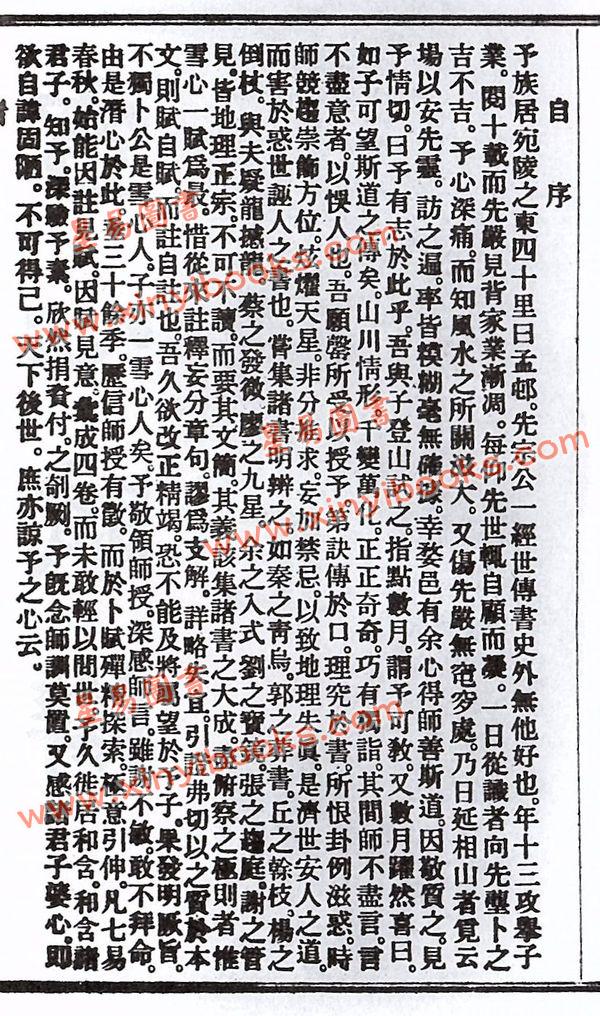 自序
予族居宛陵之東四十里日孟邨。先宗公一經世傳書史外無他好也。年十三攻舉子
業。閱十載而先嚴見背家業漸凋。每仰先世輒自顧而凝。一日從識者向先壟卜之
吉不吉。予心深痛。而知風水之所關大。又傷先嚴無窀穸處。乃日延相山者覓云
場以安先靈。訪之遍。率皆模糊毫無確。幸婺邑有余心得師善斯道。因敬質之。見
予情切。日予有志於此乎。吾與子登山詁之。指點數月。謂予可教。又數月躍然喜日。
如子可望斯道之傳矣。山川情形。千變萬化。正正奇奇。巧有詣。其間師不盡言。言
不盡意者。以悞人也。吾願罄所受以授予。第訣傳於口。理究於書。所恨卦例滋惑。時
師競趨崇飾方位。炫燿天星。非分求。妄加禁忌。以致地理失真。是濟世安人之道。
而害於惑世誣人之書也。嘗集諸書明辨之。如秦之靑烏。郭之葬書。丘之榦枝。楊之
倒杖。與夫疑龍撼龍。蔡之發微。廖之九星。余之入式。劉之寶。張之趨庭。謝之管
見。皆地理正宗。不可不讀。而要其文簡。其義該集諸書之大成。俯察之極則者。惟
雪心一賦爲最。惜從來註釋妄分章句。謬爲支解。詳略失宜。引證弗切以之質於本
文。則賦自賦。而註自註也。吾久欲改正精竭。恐不能及將屬望於子子。果發明厥旨。
不獨卜公是雪心人。子亦一雪心人矣。予敬領師授。深感師言。雖謝不敏。敢不拜命。
由是潛心於此三十餘季。歷信師授有徵。而於卜賦殫精探索。極意引伸。凡七易
春秋。始能因註見賦。因賦見意。彙成四卷。而未敢輕以問世。予久徙居和含。和含諸
君子。知予。深驗予素。欣然捐資付。之剞劂。予旣念師訓莫置。又感諸君子婆心。即
欲自諱固陋。不可得已。天下後世。庶亦諒予之心云。
星易圖書
www.xinyibooks.com
星易圖書
www.xinyibooks.com
星易圖書
www.xinyibooks.com
星易圖書